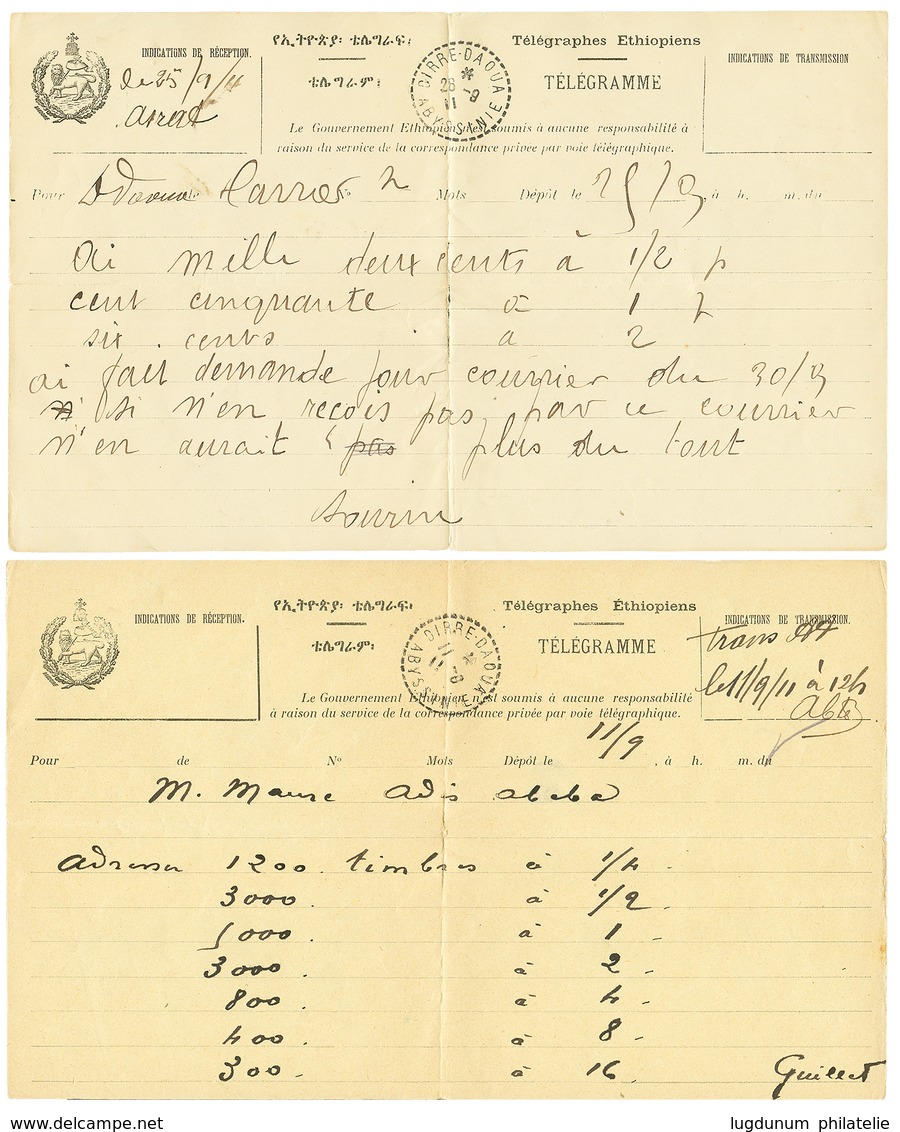 INDICATIONS DE RÉCEPTION.
le 25/9/11
የኢትዮጵያ፡ ቴሌግራፍ፡
ቴሌግራም፡
DIRRE-DAOUA
ABYSSINIE
Télégraphes Ethiopiens
TÉLÉGRAMME
INDICATIONS DE TRANSMISSION
Le Gouvernement Ethiopien n'est soumis à aucune responsabilité à
raison du service de la correspondance privée par voie télégraphique.
Pour de Harrar No Mots Dépôt le 25/9, à h. m. du
ai mille deux cents à 1/2 p
cent cinquante à 1
six cents a 2
ai fait demande pour courrier du 30/9
si n'en reçois pas, par ce courrier
n'en aurait pas plus du tout
INDICATIONS DE RÉCEPTION.
የኢትዮጵያ፡ ቴሌግራፍ፡
ቴሌግራም፡
DIRRE-DAOUA
ABYSSINIE
Télégraphes Éthiopiens
TÉLÉGRAMME
INDICATIONS DE TRANSMISSION.
trans
le 11/9/11 à 12h
Le Gouvernement Ethiopien n'est soumis à aucune responsabilité
à raison du service de la correspondance privée par voie télégraphique.
Pour de No Mots Dépôt le 11/9, à h. m. du
M. Maure Adis Ababa
Adresser 1200 timbres à 1/4 -
3000. à 1/2.
1000. à 1 -
3000. à 2 -
800. à 4 -
400. à 8 -
300 - à 16 - Guillet
lugdunum philatelie
www.delcampe.net